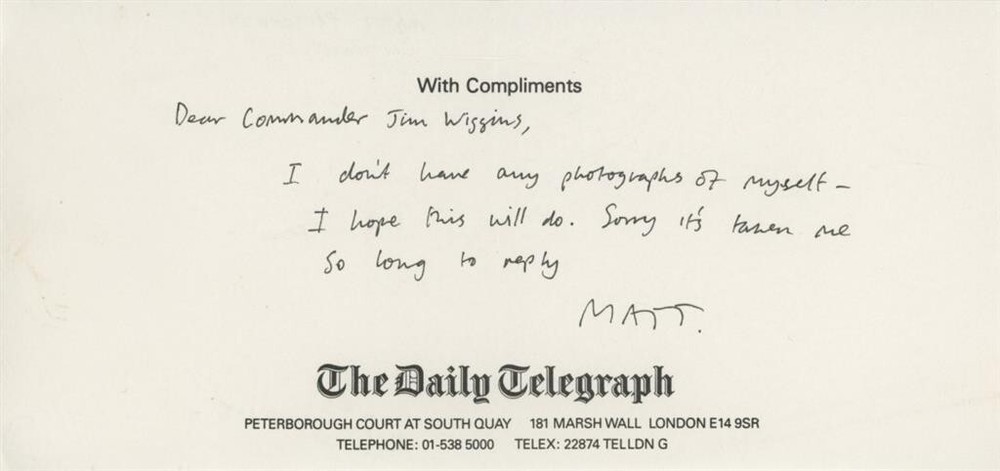 With Compliments
Dear Commander Jim Wiggins,
I don't have any photographs of myself –
I hope this will do. Sorry it's taken me
so long to reply
MATT.
The Daily Telegraph
PETERBOROUGH COURT AT SOUTH QUAY 181 MARSH WALL LONDON E14 9SR
TELEPHONE: 01-538 5000 TELEX: 22874 TELLDN G